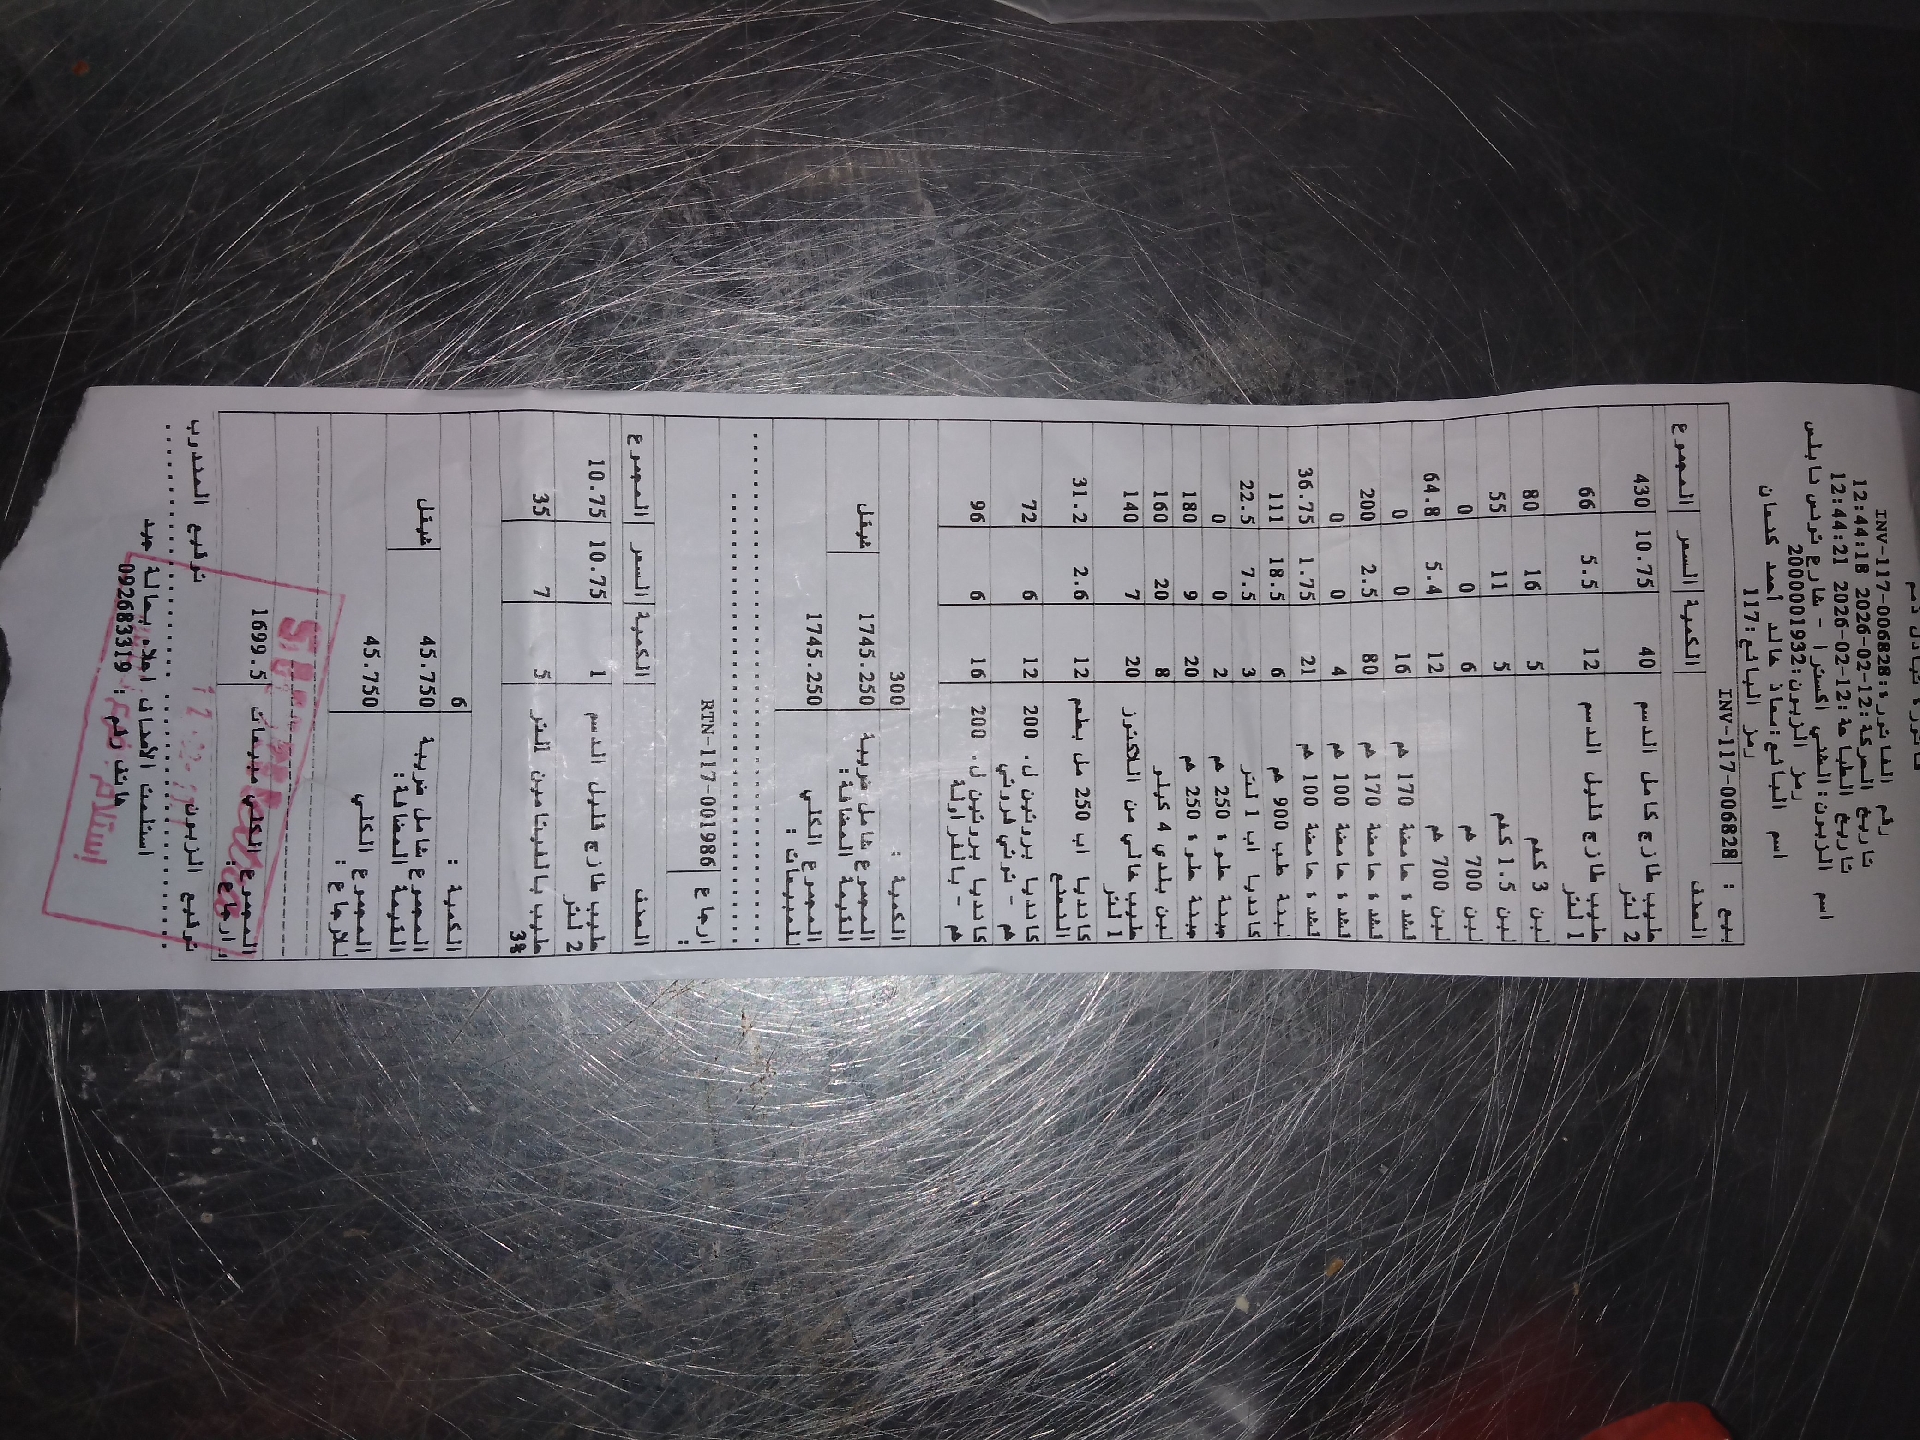 رقم الفاتورة:INV-117-006828
تاريخ الحركة:12-02-2026 12:44:18
تاريخ الطباعة:12-02-2026 12:44:21
اسم الزبون:الشني اكسترا - شارع تونس نابلس
رمز الزبون:200001932
اسم البائع:معاذ خالد أحمد كنعان
رمز البائع:117
بيع : INV-117-006828
الصنف الكمية السعر المجموع
حليب طازج كامل الدسم 40 10.75 430
2 لتر
حليب طازج قليل الدسم 12 5.5 66
1 لتر
لبن 3 كغم 5 16 80
لبن 1.5 كغم 5 11 55
لبن 700 غم 6 0 0
لبن 700 غم 12 5.4 64.8
لشدة حامضة 170 غم 16 0 0
لشدة حامضة 170 غم 80 2.5 200
لشدة حامضة 100 غم 4 0 0
لشدة حامضة 100 غم 21 1.75 36.75
لبنة علب 900 غم 6 18.5 111
كانديا اب 1 لتر 3 7.5 22.5
جبنة حلوة 250 غم 2 0 0
جبنة حلوة 250 غم 20 9 180
لبن بلدي 4 كيلو 8 20 160
حليب خالي من اللاكتوز 20 7 140
1 لتر
كانديا اب 250 مل بطعم 12 2.6 31.2
كانديا بروتين ل. 200 12 6 72
غم - توتي فروتي
كانديا بروتين ل. 200 16 6 96
غم - بالفراولة
الكمية : 300
المجموع شامل ضريبة 1745.250 شيقل
القيمة المضافة:
المجموع الكلي 1745.250
للمبيعات :
ارجاع RTN-117-001986
:
الصنف الكمية السعر المجموع
حليب طازج قليل الدسم 1 10.75 10.75
2 لتر
حليب بالفيتامين المتر 5 7 35
3%
الكمية : 6
المجموع شامل ضريبة 45.750 شيقل
القيمة المضافة:
المجموع الكلي 45.750
للارجاع :
المجموع الكلي مبيعات 1699.5
، ارجاع :
توقيع الزبون توقيع المندوب
استلمت الأصناف اعلاه بحالة جيد
هاتف رقم : 092683319
إستلام